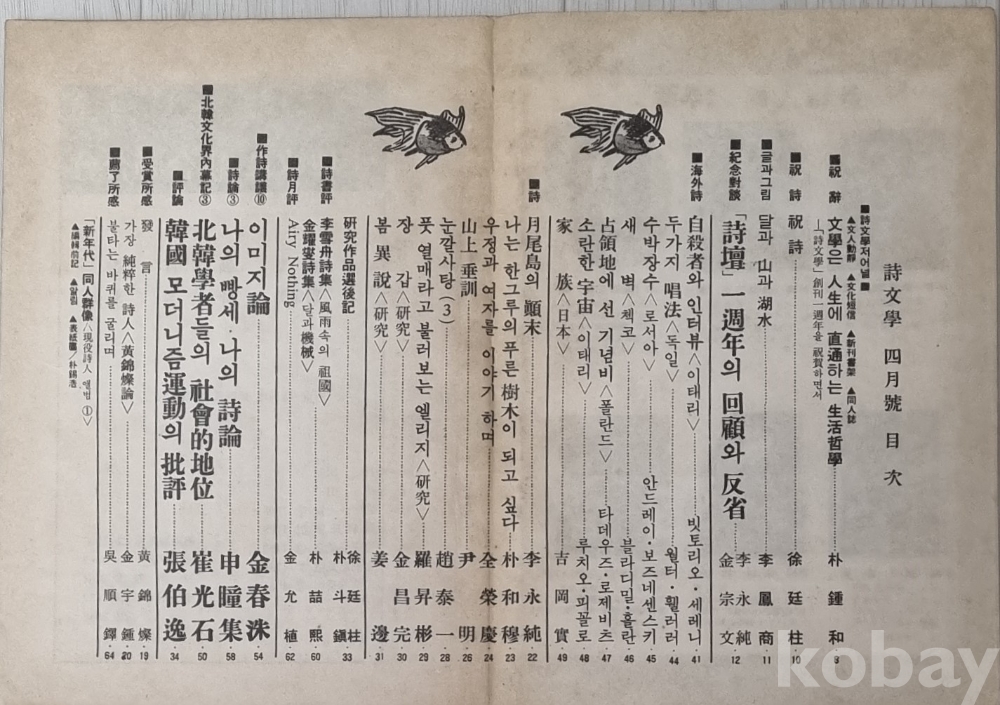 詩文學 四月號 目次
■詩文學저어널■
▲文人動靜 ▲文化短信 ▲新刊書架 ▲同人誌
■祝辭 文學으로 人生에 直通하는 生活哲學 朴鍾和 8
—「詩文學」創刊一週年을 祝賀하면서
■祝詩 祝詩 徐廷柱 10
■글과그림 달과 山과 湖水 李鳳商 11
■紀念對談 「詩壇」一週年의 回顧와 反省 李永純 金宗文 12
■海外詩 自殺者와 인터뷰<이태리> 빗토리오·세레니 41
두가지 唱法<독일> 월터·휄러러 44
수박장수<로서아> 안드레이·보즈네센스키 45
새벽<첵코> 블라디밀·홀란 46
占領地에 선 기념비<폴란드> 타데우즈·로제비츠 47
소란한 宇宙<이태리> 루치오·피꼴로 48
家族<日本> 吉岡實 49
■詩 月尾島의 顚末 李永純 22
나는 한그루의 푸른 樹木이 되고 싶다 朴和穆 23
우정과 여자를 이야기 하며 全榮慶 24
山上垂訓 尹明 26
눈깔사탕(3) 趙泰一 28
풋열매라고 불러보는 엘리지<研究> 羅昇彬 29
장갑<研究> 金昌完 30
봄異說<研究> 姜邊 31
研究作品選後記 徐廷柱 朴斗鎭 33
■詩書評 李雪舟詩集<風雨속의 祖國>
金耀燮詩集<달과 機械> 朴喆熙 60
■詩月評 Airy Nothing 金允植 62
■作詩講議⑩ 이미지論 金春洙 54
■詩論③ 나의 뺑세·나의 詩論 申瞳集 58
■北韓文化界內幕記③ 北韓學者들의 社會的地位 崔光石 50
■評論 韓國 모더니즘運動의 批評 張伯逸 34
■受賞所感 發言 黃錦燦 19
가장 純粹한 詩人<黃錦燦論> 金宇鍾 20
■薦了所感 불타는 바퀴를 굴리며 吳順鐸 64
「新年代」同人群像<現役詩人 앨범①>
▲編輯前記 ▲알림 ▲表紙畵/朴錫浩
kobay